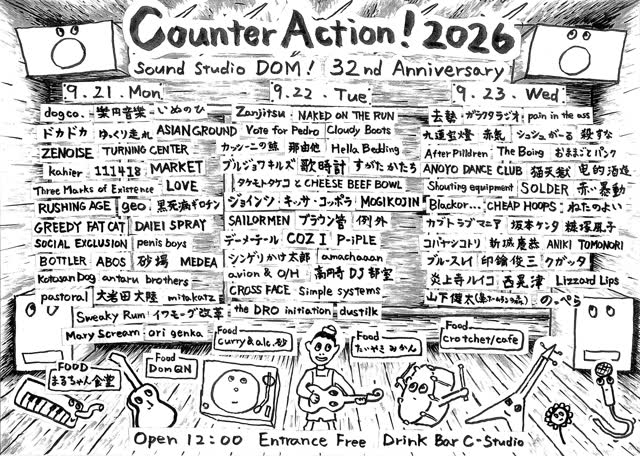 Counter Action! 2026
Sound Studio DOM! 32nd Anniversary
9.21.Mon
dogco. 楽円音楽 いぬのひ
ドカドカ ゆっくり走れ ASIAN GROUND
ZENOISE TURNING CENTER
kahier 111418 MARKET
Three Marks of Existence LOVE
RUSHING AGE geo. 黒死病ギロチン
GREEDY FAT CAT DAIEI SPRAY
SOCIAL EXCLUSION penis boys
BOTTLER ABOS 砂場 MEDEA
Kotosan Dog antaru brothers
pastoral 大岩田大陸 mitakatz
Sweaky Rum イワモーグ改革
Mary Scream ori genka
9.22.Tue
Zanjitsu NAKED ON THE RUN
Vote for Pedro Cloudy Boots
カッシーニの鯨 那由他 Hella Bedding
ブルジョワキルズ 歌時計 すがたかたち
タケモトタケコとCHEESE BEEF BOWL
ジョインツ・キッサ・コッポラ MOGIKOJIN
SAILORMEN ブラウン管 例外
デーメーテール COZI P-iPLE
シンゲリかけ太郎 amachaaan
avion & O/H 高円寺DJ部室
CROSS FACE Simple systems
the DRO initiation dustilk
9.23.Wed
去勢 ガラクタラジオ pain in the ass
九蓮宝燈 赤氣 シュシュがーる 殺すな
After Pilldren The Boing おままごとパンク
ANOYO DANCE CLUB 猫天獄 電的酒造
Shouting equipment SOLDER 赤い暴動
Blackor... CHEAP HOOPS ねたのよい
カブトラブマニア 坂本ケンタ 糠塚凪子
コバヤシコトリ 新城慶恭 ANIKI TOMONORI
ブルースレイ 印鑰俊三 クガッタ
炎上寺ルイコ 西晃津 Lizzard Lips
山下健太 のっぺら
FOOD まるちゃん食堂
Food DomQN
Food curry&alc.砂
Food たいやきみかん
Food crotchet/cafe
Open 12:00 Entrance Free Drink Bar C-Studio